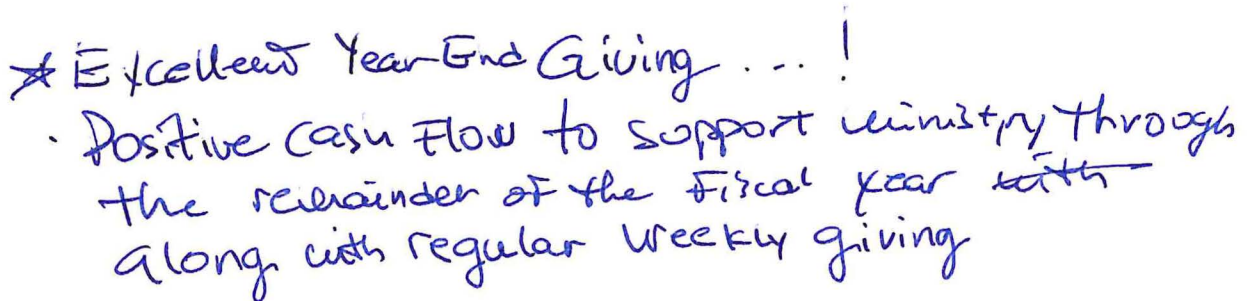 * Excellent Year-End Giving ... !
· Positive cash Flow to support ministry through
the remainder of the Fiscal year with
along with regular weekly giving